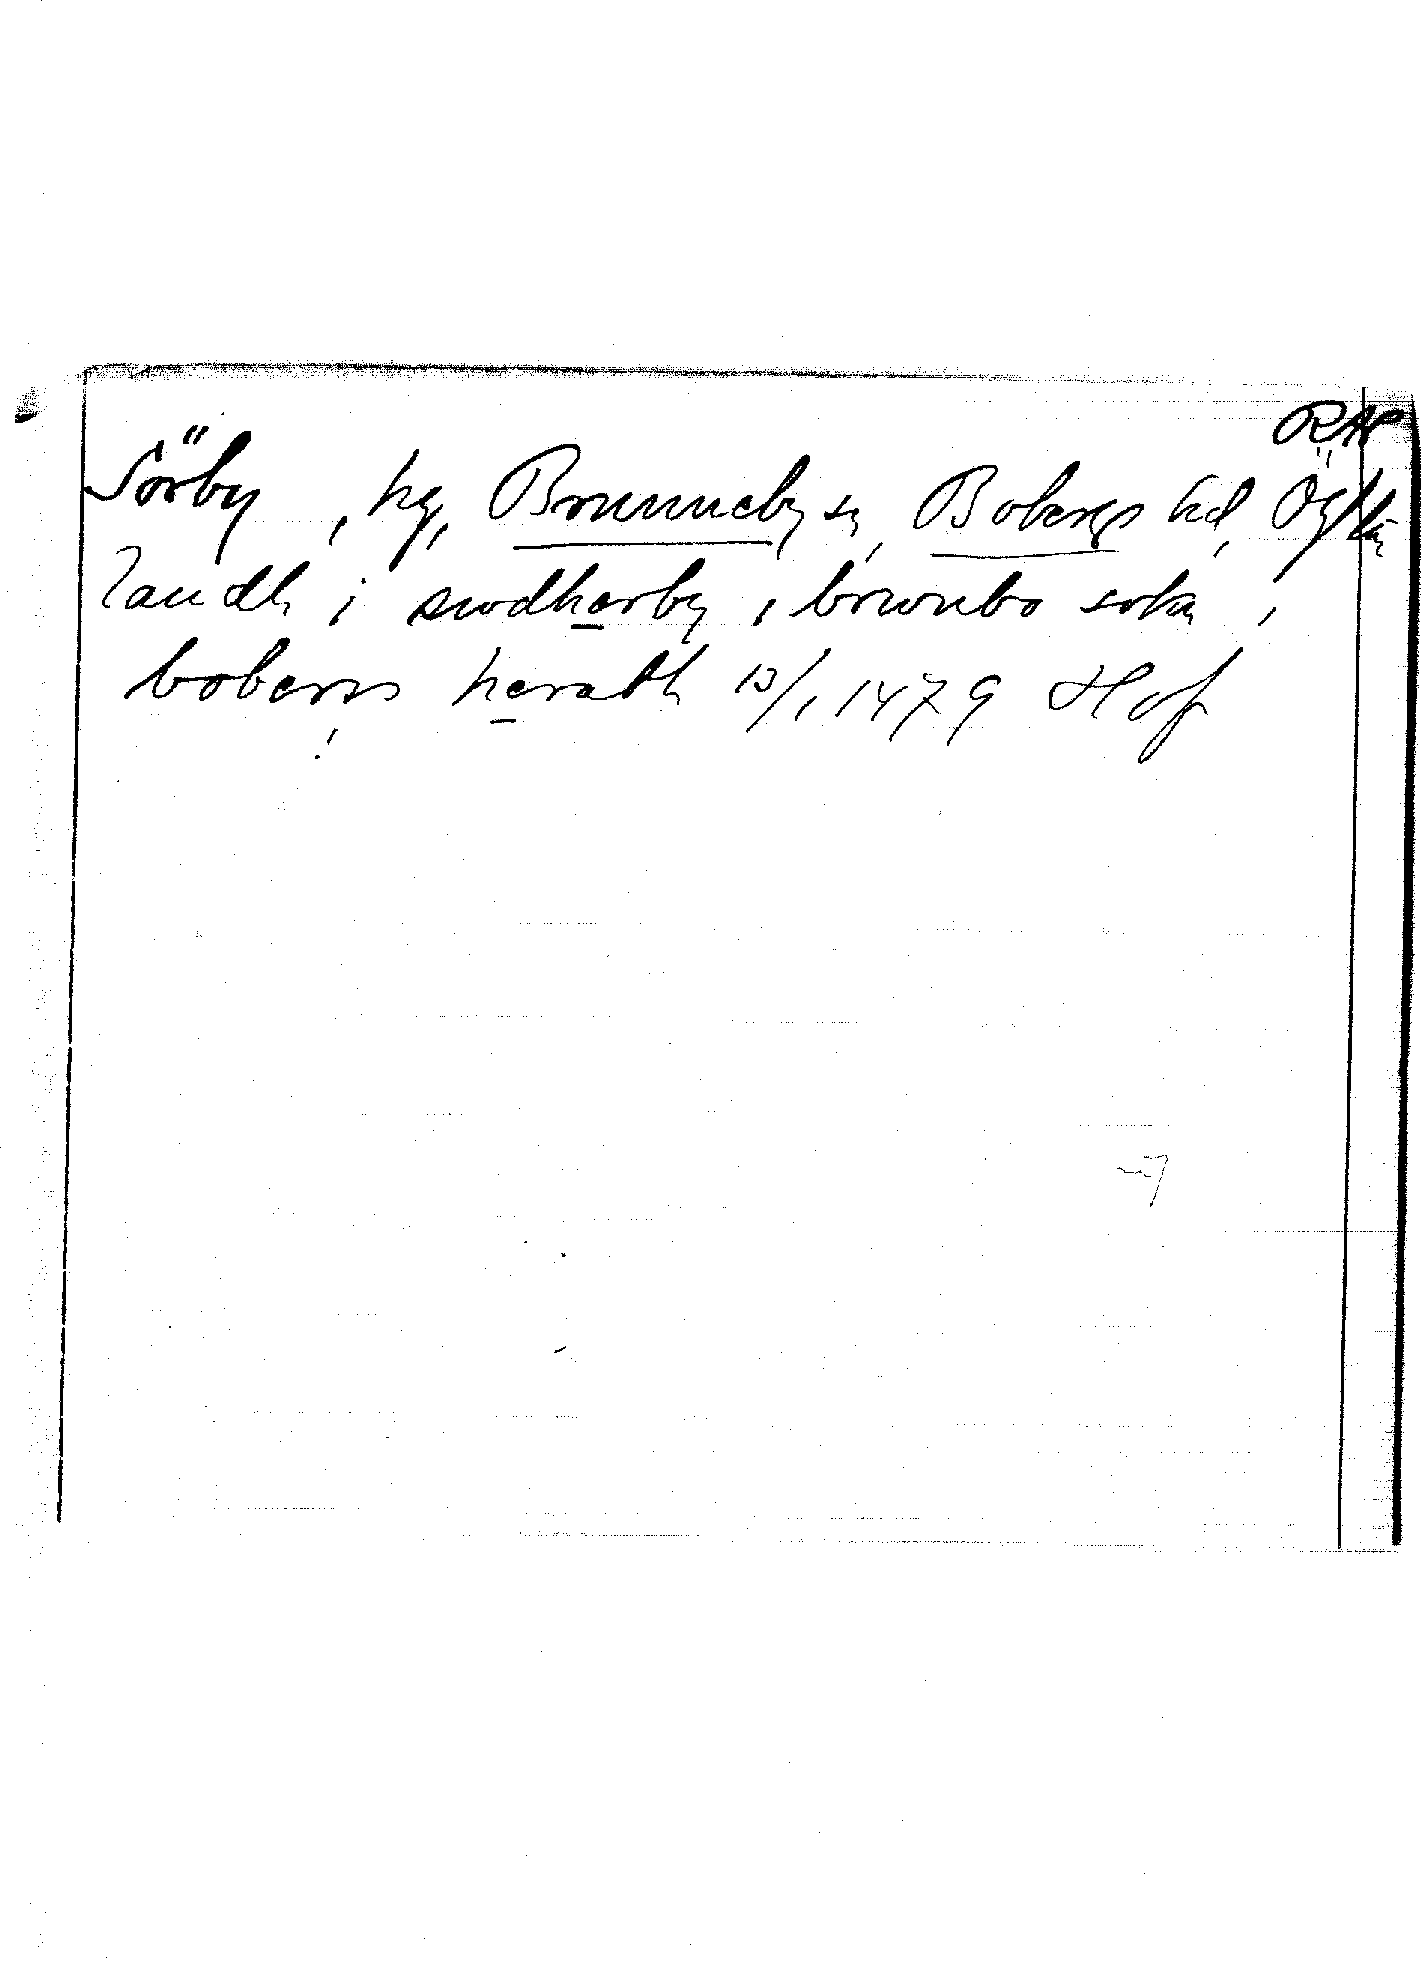 RAP
Sörby, hg, Brunneby sn, Bobergs hd, Ög län
landh i swdherby, brwnbo sokn,
bobergs heradh 13/1 1479 Hof